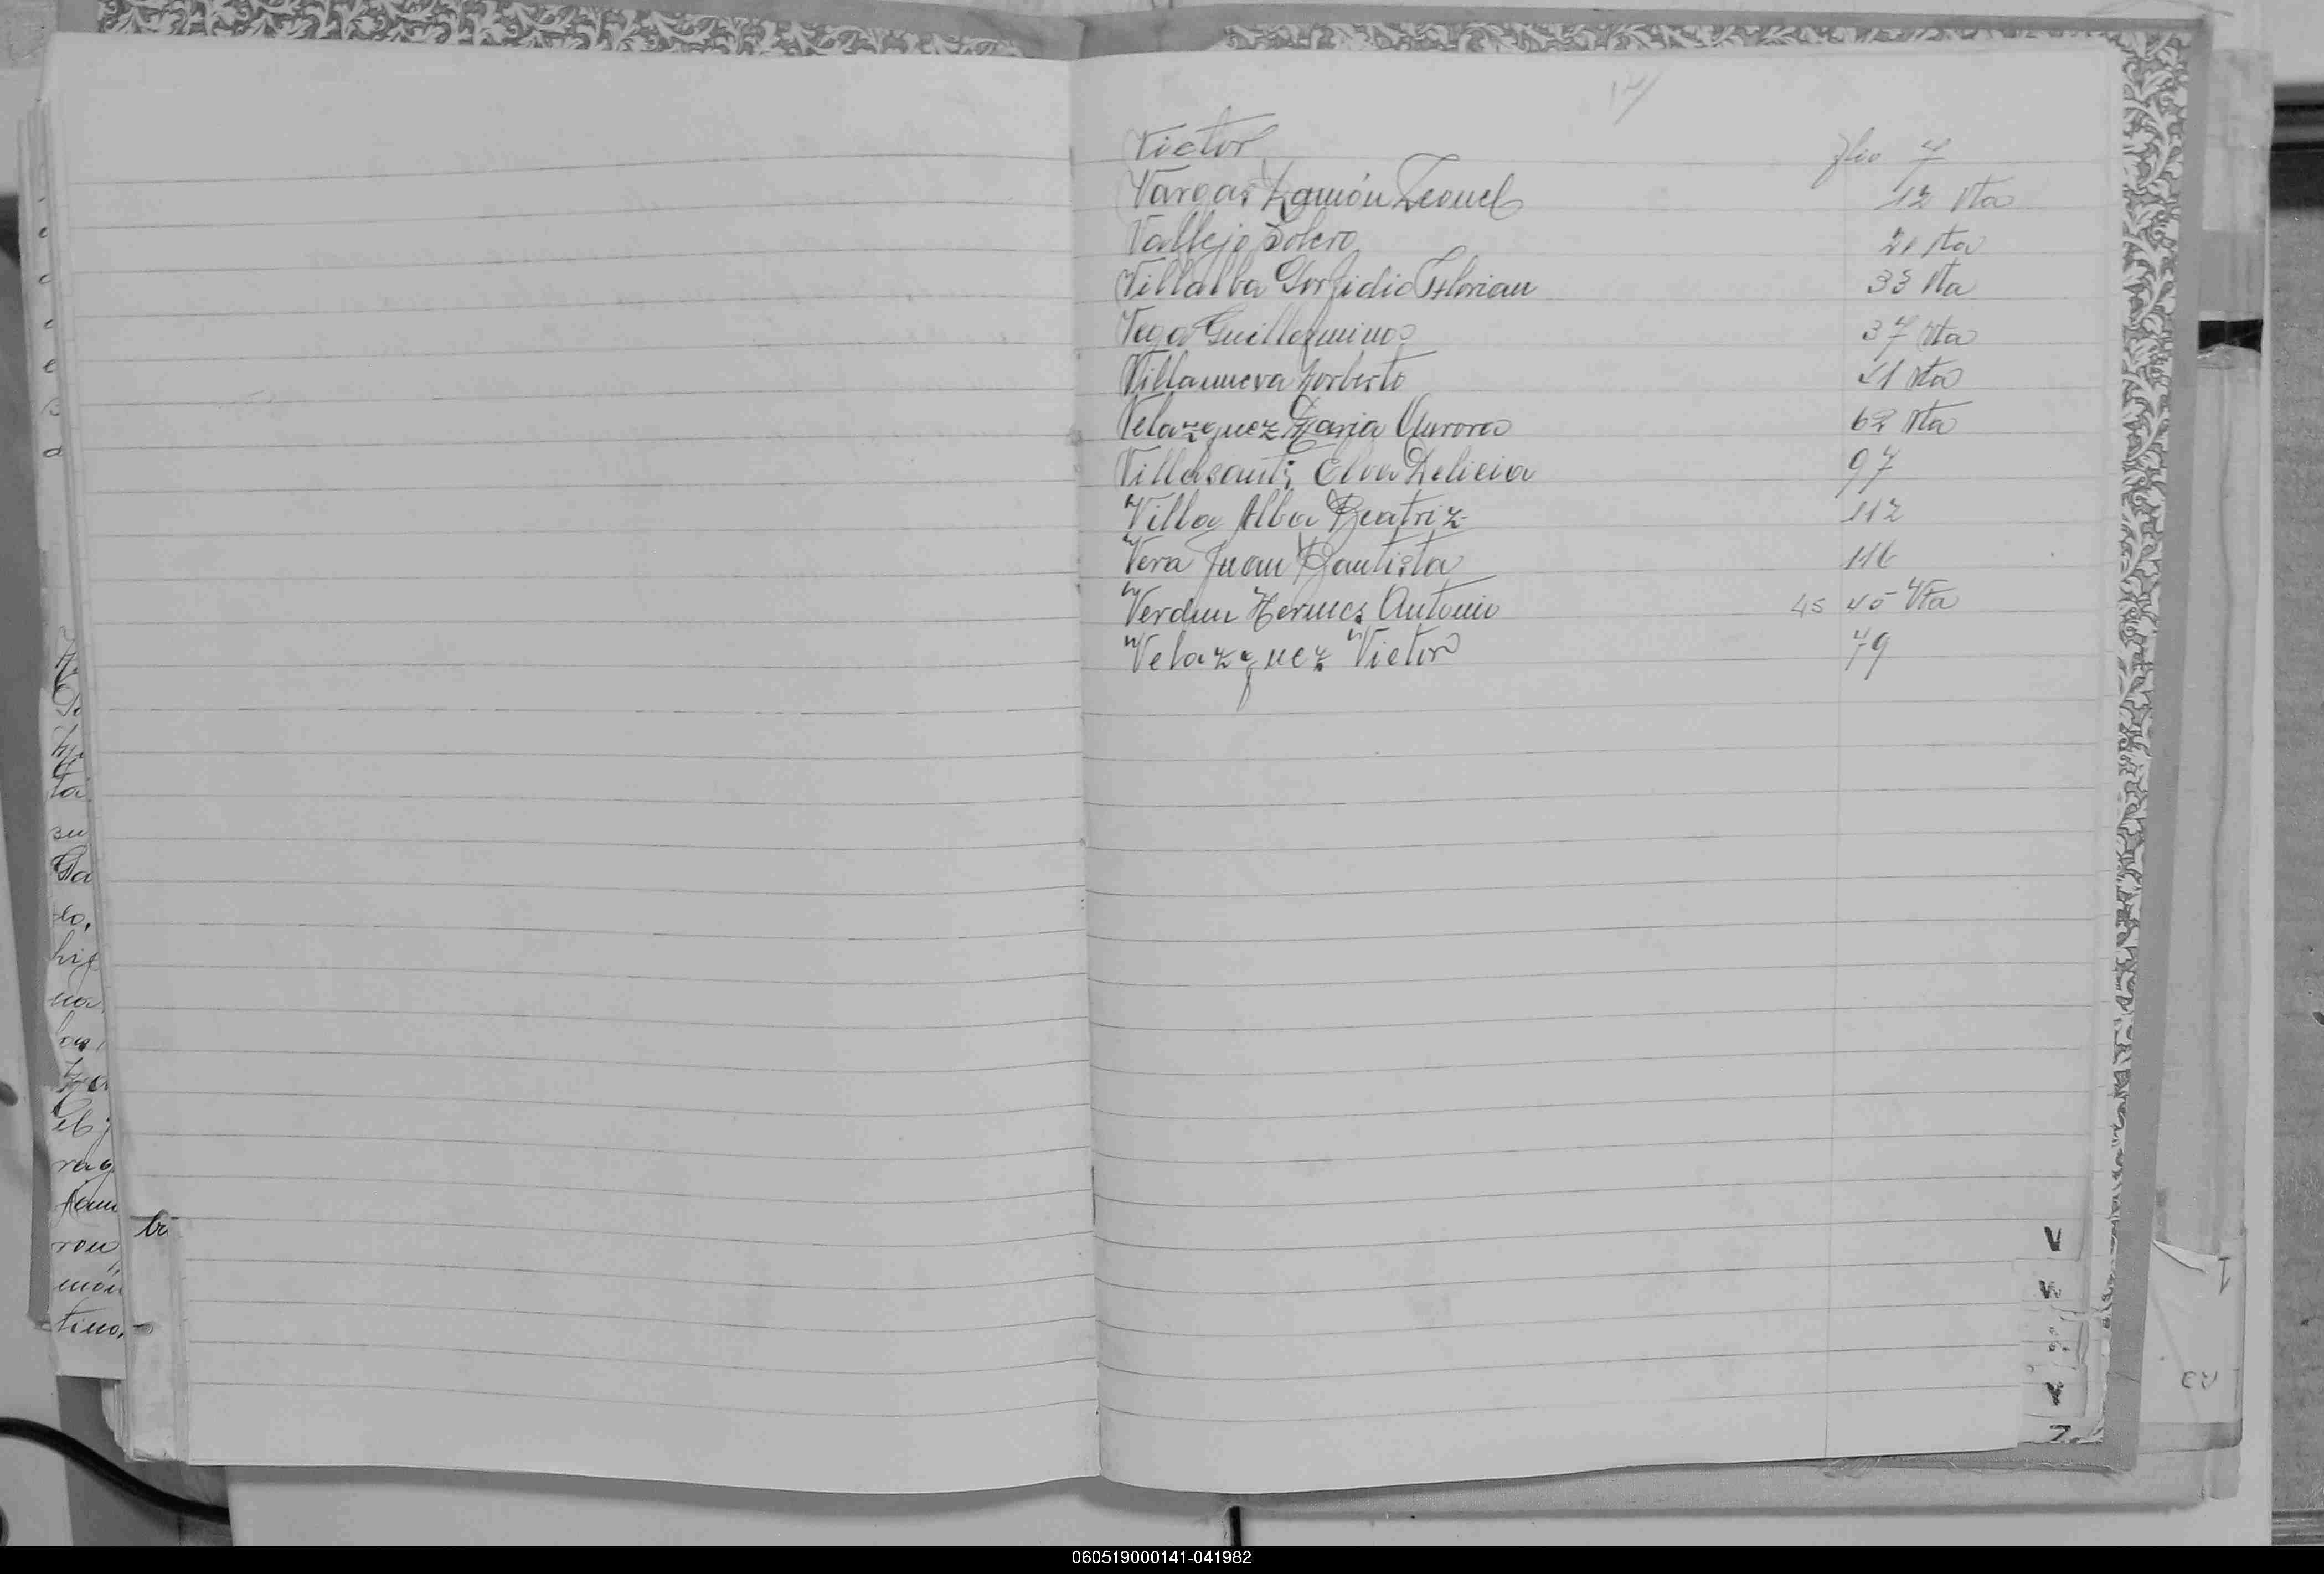 Victor flio 7
Vargas Ramón Leonel 12 Vta
Vallejo Sotero 21 Vta
Villalba Porfidio Florian 33 Vta
Vega Guillermina 37 Vta
Villanueva Norberto 41 Vta
Velazquez Maria Aurora 62 Vta
Villasanti Elva Delicia 97
Villa Alba Beatriz 112
Vera Juan Bautista 116
Verdun Hermes Antonio 45 45 Vta
Velazquez Victor 79
V
W
Y
Z
060519000141-041982